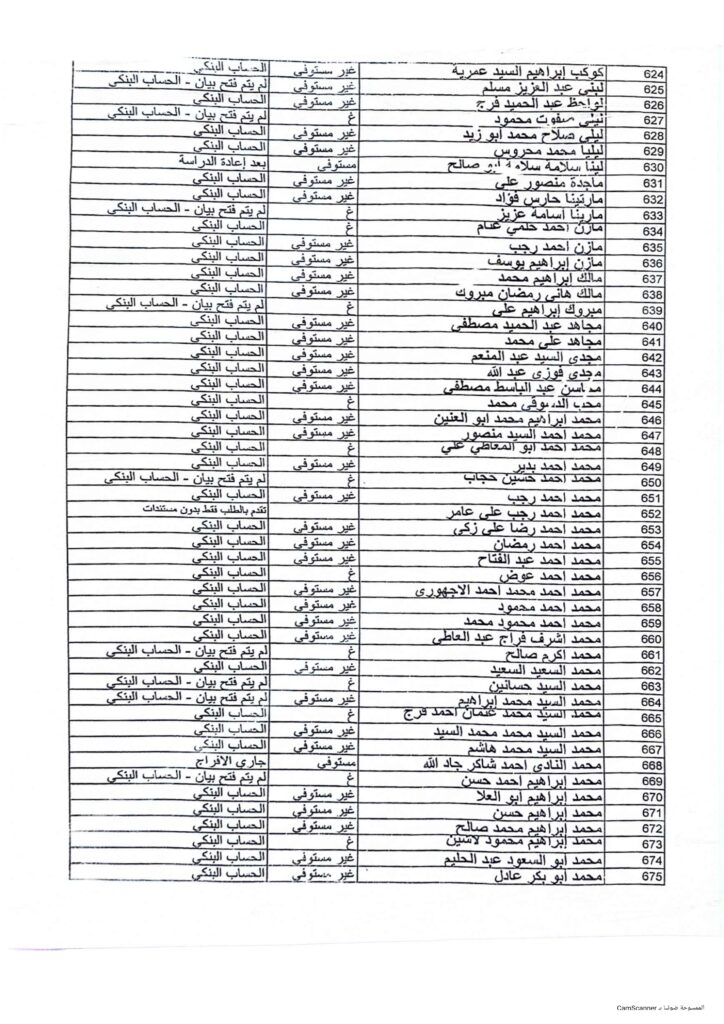 624 كوكب إبراهيم السيد عمرية غير مستوفي الحساب البنكي
625 لبنى عبد العزيز مسلم غير مستوفي لم يتم فتح بيان - الحساب البنكي
626 لواحظ عبد الحميد فرج غير مستوفي الحساب البنكي
627 ليلى صفوت محمود غ لم يتم فتح بيان - الحساب البنكي
628 ليلى صلاح محمد ابو زيد غير مستوفي الحساب البنكي
629 ليليا محمد محروس غير مستوفي الحساب البنكي
630 لينا سلامة سلامة ابو صالح مستوفي بعد إعادة الدراسة
631 ماجدة منصور على غير مستوفي الحساب البنكي
632 مارتينا حارس فؤاد غير مستوفي الحساب البنكي
633 مارينا أسامة عزيز غ لم يتم فتح بيان - الحساب البنكي
634 مازن احمد حلمي غنام غ الحساب البنكي
635 مازن احمد رجب غير مستوفي الحساب البنكي
636 مازن إبراهيم يوسف غير مستوفي الحساب البنكي
637 مالك إبراهيم محمد غير مستوفي الحساب البنكي
638 مالك هانى رمضان مبروك غير مستوفي الحساب البنكي
639 مبروك إبراهيم على غ لم يتم فتح بيان - الحساب البنكي
640 مجاهد عبد الحميد مصطفى غير مستوفي الحساب البنكي
641 مجاهد على محمد غير مستوفي الحساب البنكي
642 مجدى السيد عبد المنعم غير مستوفي الحساب البنكي
643 مجدى فوزى عبد الله غير مستوفي الحساب البنكي
644 محاسن عبد الباسط مصطفى غير مستوفي الحساب البنكي
645 محب الدسوقى محمد غ الحساب البنكي
646 محمد ابراهيم محمد ابو العنين غير مستوفي الحساب البنكي
647 محمد احمد السيد منصور غير مستوفي الحساب البنكي
648 محمد احمد ابو المعاطي علي غ الحساب البنكي
649 محمد احمد بدير غير مستوفي الحساب البنكي
650 محمد احمد حسين حجاب غ لم يتم فتح بيان - الحساب البنكي
651 محمد احمد رجب غير مستوفي الحساب البنكي
652 محمد احمد رجب على عامر تقدم بالطلب فقط بدون مستندات
653 محمد احمد رضا على زكى غير مستوفي الحساب البنكي
654 محمد احمد رمضان غير مستوفي الحساب البنكي
655 محمد احمد عبد الفتاح غير مستوفي الحساب البنكي
656 محمد احمد عوض غ الحساب البنكي
657 محمد احمد محمد احمد الاجهورى غير مستوفي الحساب البنكي
658 محمد احمد محمود غير مستوفي الحساب البنكي
659 محمد احمد محمود محمد غير مستوفي الحساب البنكي
660 محمد اشرف فراج عبد العاطى غير مستوفي الحساب البنكي
661 محمد اكرم صالح غ لم يتم فتح بيان - الحساب البنكي
662 محمد السعيد السعيد غير مستوفي الحساب البنكي
663 محمد السيد حسانين غ لم يتم فتح بيان - الحساب البنكي
664 محمد السيد محمد إبراهيم غير مستوفي لم يتم فتح بيان - الحساب البنكي
665 محمد السيد محمد عثمان احمد فرج غ الحساب البنكي
666 محمد السيد محمد محمد السيد غير مستوفي الحساب البنكي
667 محمد السيد محمد هاشم غير مستوفي الحساب البنكي
668 محمد النادى احمد شاكر جاد الله مستوفي جاري الافراج
669 محمد إبراهيم احمد حسن غ لم يتم فتح بيان - الحساب البنكي
670 محمد إبراهيم ابو العلا غير مستوفي الحساب البنكي
671 محمد إبراهيم حسن غير مستوفي الحساب البنكي
672 محمد إبراهيم محمد صالح غير مستوفي الحساب البنكي
673 محمد إبراهيم محمود لاشين غ الحساب البنكي
674 محمد ابو السعود عبد الحليم غير مستوفي الحساب البنكي
675 محمد ابو بكر عادل غير مستوفي الحساب البنكي
الممسوحة ضوئيا بـ CamScanner